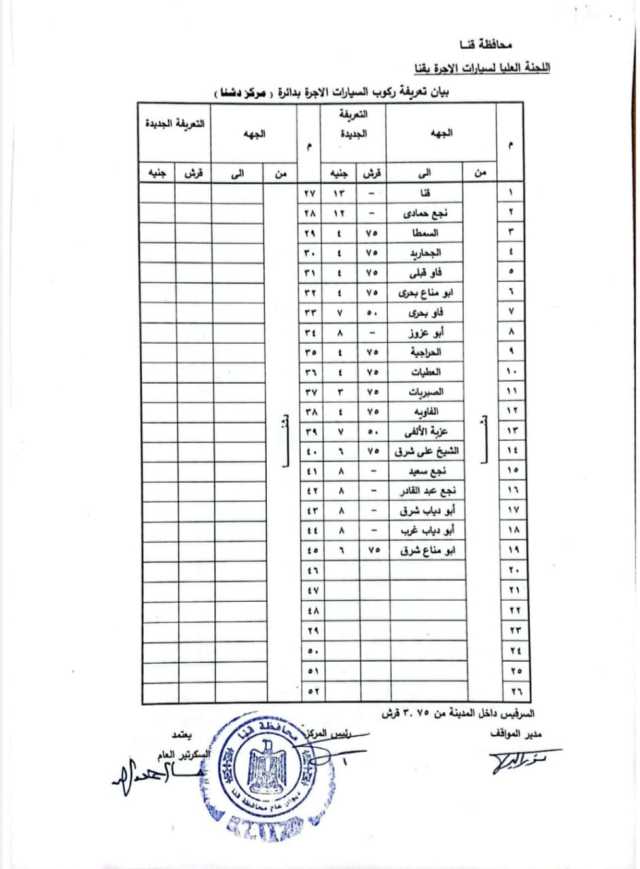 محافظة قنا
اللجنة العليا لسيارات الاجرة بقنا
بيان تعريفة ركوب السيارات الاجرة بدائرة ( مركز دشنا )
م الجهه التعريفة الجديدة م الجهه التعريفة الجديدة
من الى قرش جنيه من الى قرش جنيه
١ قنا – ١٣ ٢٧
٢ نجع حمادى – ١٢ ٢٨
٣ السمطا ٧٥ ٤ ٢٩
٤ الجحاريد ٧٥ ٤ ٣٠
٥ فاو قبلى ٧٥ ٤ ٣١
٦ ابو مناع بحرى ٧٥ ٤ ٣٢
٧ فاو بحرى ٥٠ ٧ ٣٣
٨ أبو عزوز – ٨ ٣٤
٩ الحراجية ٧٥ ٤ ٣٥
١٠ العطيات ٧٥ ٤ ٣٦
١١ الصبريات ٧٥ ٣ ٣٧
١٢ الفاويه ٧٥ ٤ ٣٨
١٣ عزبة الألفى ٥٠ ٧ ٣٩
دشنا دشنا
١٤ الشيخ على شرق ٧٥ ٦ ٤٠
١٥ نجع سعيد – ٨ ٤١
١٦ نجع عبد القادر – ٨ ٤٢
١٧ أبو دياب شرق – ٨ ٤٣
١٨ أبو دياب غرب – ٨ ٤٤
١٩ ابو مناع شرق ٧٥ ٦ ٤٥
٢٠ ٤٦
٢١ ٤٧
٢٢ ٤٨
٢٣ ٢٩
٢٤ ٥٠
٢٥ ٥١
٢٦ ٥٢
السرفيس داخل المدينة من ٣.٧٥ قرش
مدير المواقف رئيس المركز يعتمد
السكرتير العام
محافظة قنا
ديوان عام محافظة قنا